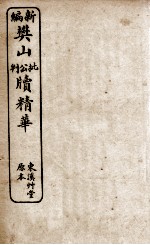 新編
樊山批公判牘精華
東溪艸堂
原本